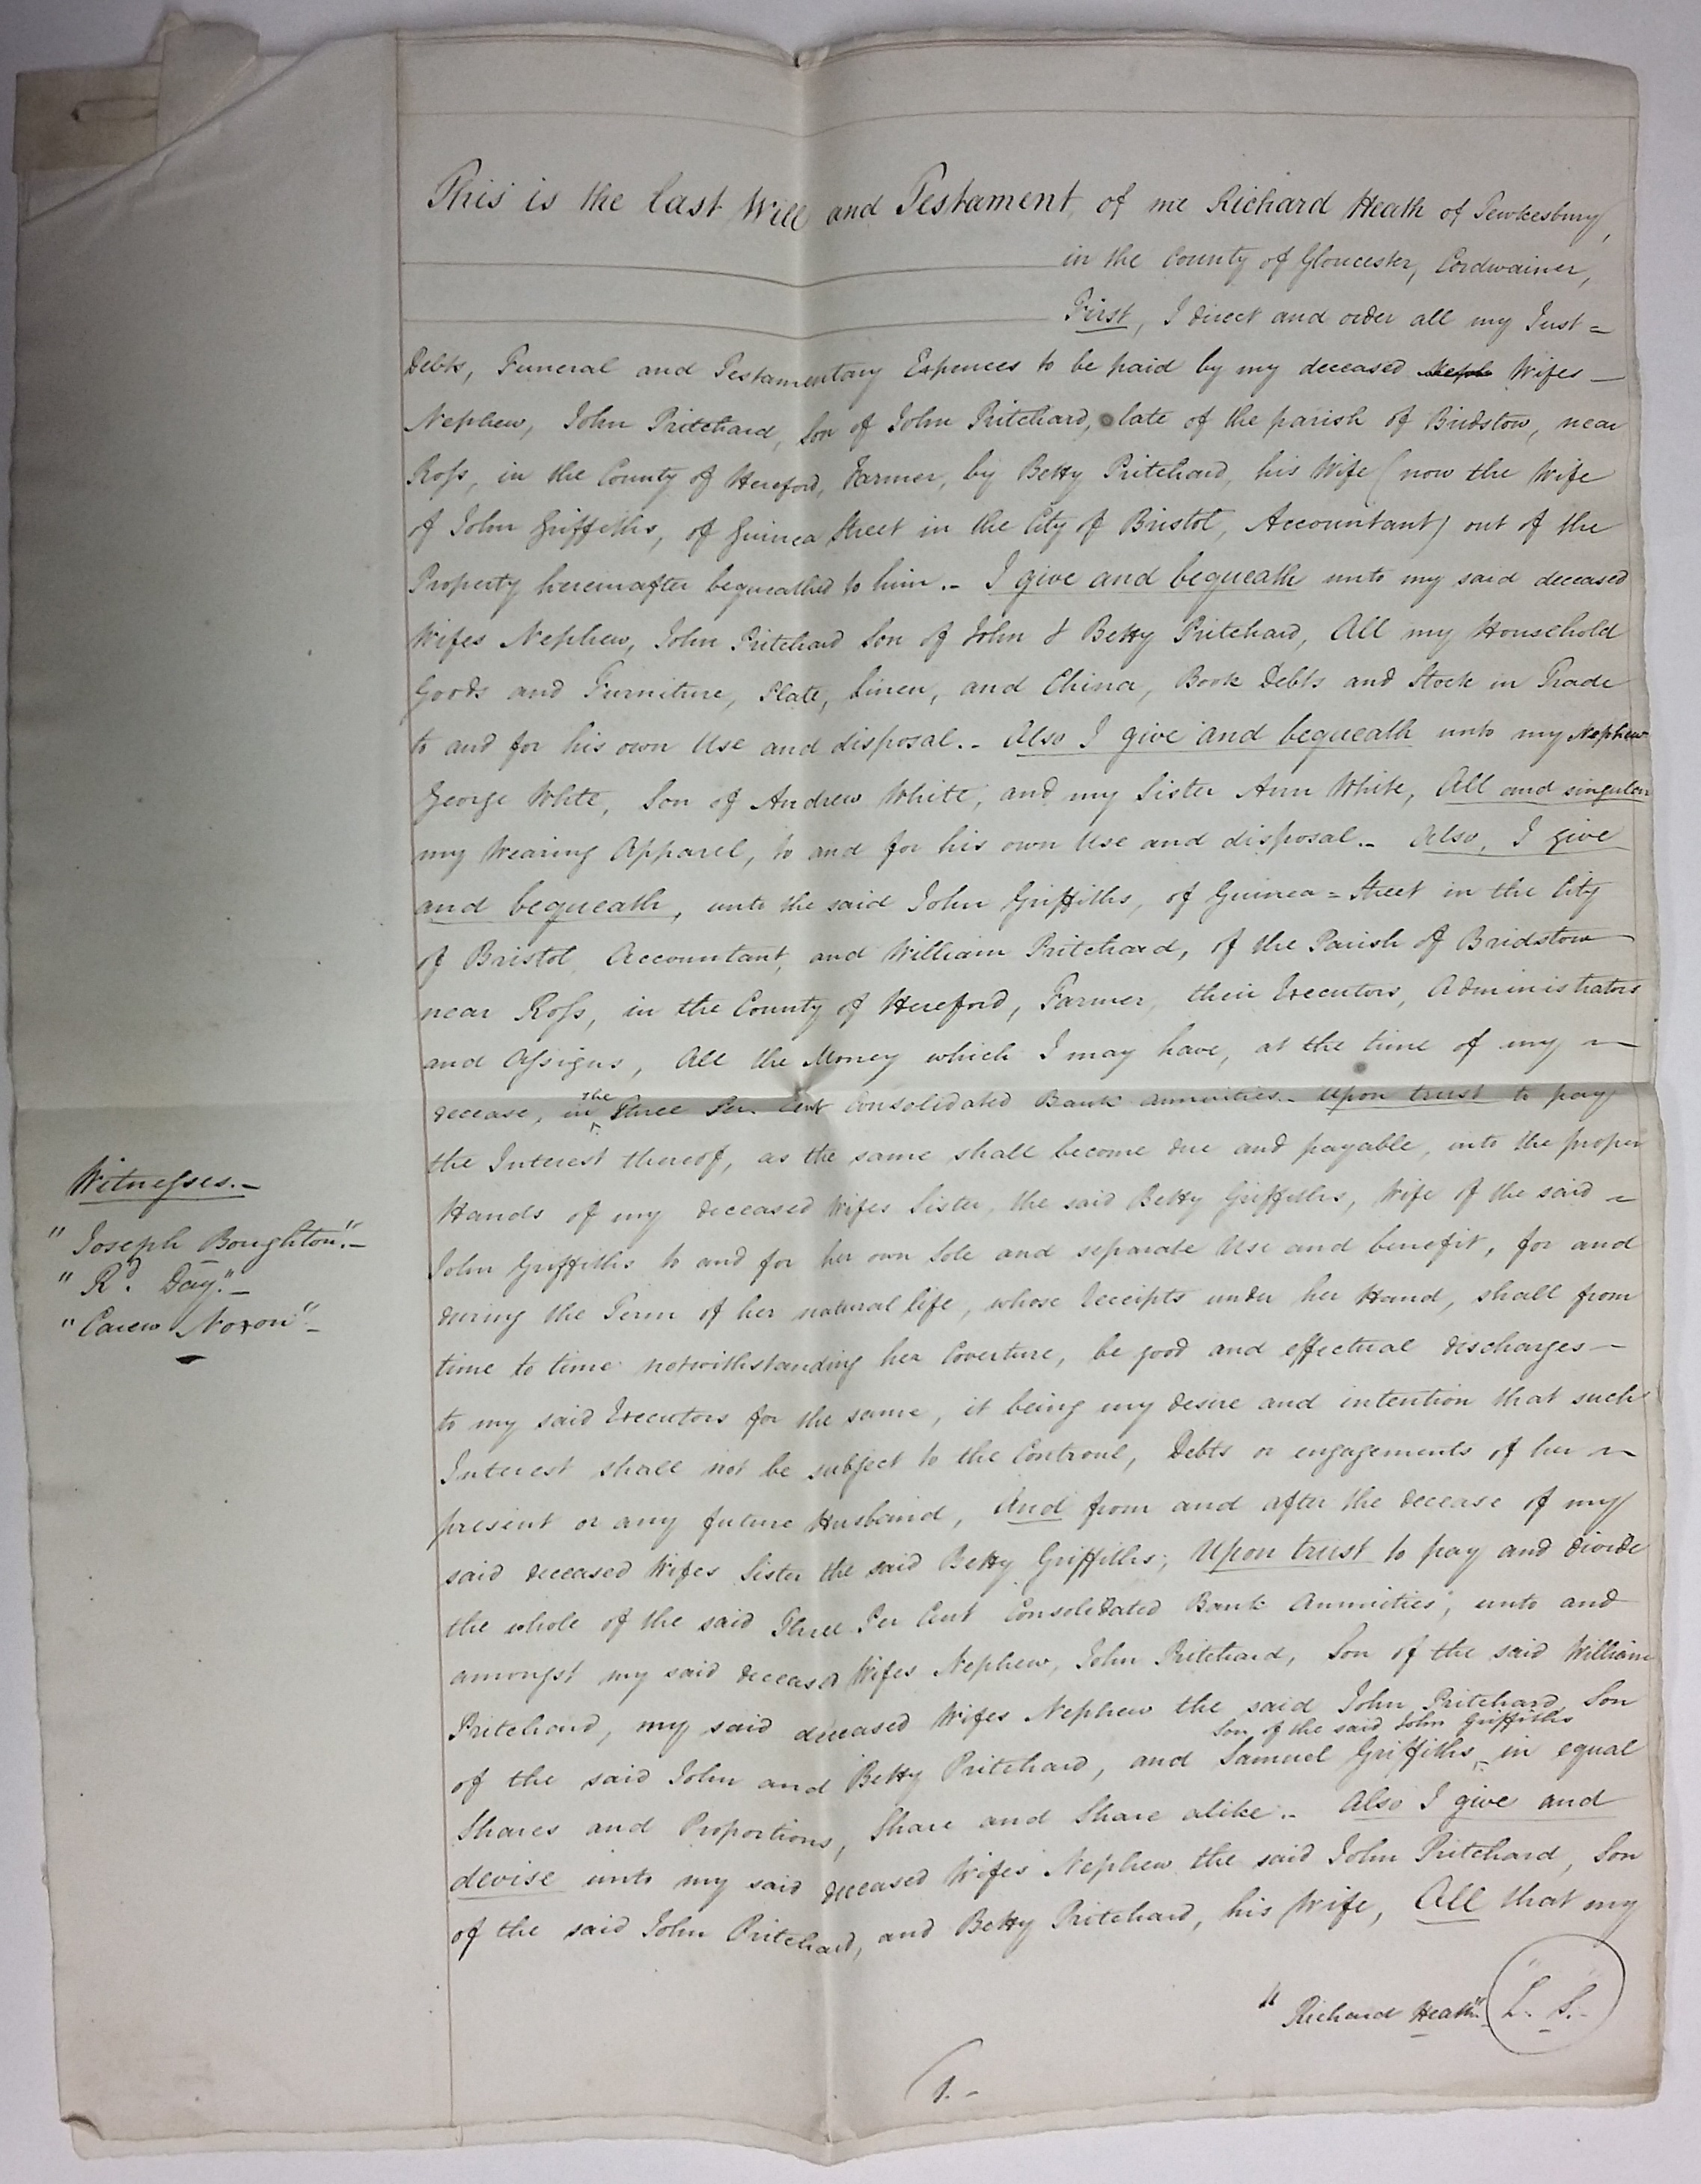 This is the last Will and Testament, of me Richard Heath of Tewkesbury,
in the County of Gloucester, Cordwainer,
First, I direct and order all my Just =
Debts, Funeral and Testamentary Expences to be paid by my deceased Wifes —
Nephew, John Pritchard, Son of John Pritchard, late of the parish of Bridstow, near
Ross, in the County of Hereford, Farmer, by Betty Pritchard, his Wife (now the Wife
of John Griffiths, of Guinea Street in the City of Bristol, Accountant) out of the
Property hereinafter bequeathed to him.- I give and bequeath unto my said deceased
Wifes Nephew, John Pritchard Son of John & Betty Pritchard, All my Household
Goods and Furniture, Plate, Linen, and China, Book Debts and Stock in Trade
to and for his own Use and disposal.- Also I give and bequeath unto my Nephew
George White, Son of Andrew White, and my Sister Ann White, All and singular
my Wearing Apparel, to and for his own Use and disposal.- Also, I give
and bequeath, unto the said John Griffiths, of Guinea = Street in the City
of Bristol, Accountant, and William Pritchard, of the Parish of Bridstow
near Ross, in the County of Hereford, Farmer, their Executors, Administrators
and Assigns, All the Money which I may have, at the time of my ~
decease, in the Three Per Cent Consolidated Bank annuities.- Upon trust to pay
the Interest thereof, as the same shall become due and payable, into the proper
Hands of my deceased Wifes Sister, the said Betty Griffiths, Wife of the said ~
John Griffiths to and for her own Sole and separate Use and benefit, for and
during the Term of her natural life, whose Receipts under her Hand, shall from
time to time notwithstanding her Coverture, be good and effectual discharges —
to my said Executors for the same, it being my desire and intention that such
Interest shall not be subject to the Controul, Debts or engagements of her ~
present or any future Husband, And from and after the decease of my
said deceased Wifes Sister the said Betty Griffiths; Upon trust to pay and divide
the whole of the said Three Per Cent Consolidated Bank Annuities, unto and
amongst my said deceased Wifes Nephew, John Pritchard, Son of the said William
Pritchard, my said deceased Wifes Nephew the said John Pritchard, Son
of the said John and Betty Pritchard, and Samuel Griffiths Son of the said John Griffiths in equal
Shares and Proportions, Share and Share alike.- Also I give and
devise unto my said deceased Wifes Nephew the said John Pritchard, Son
of the said John Pritchard, and Betty Pritchard, his Wife, All that my
"Richard Heath" L. S.
1.-
Witnesses.-
"Joseph Boughton".-
"Rd. Day".-
"Carew Noxon"-